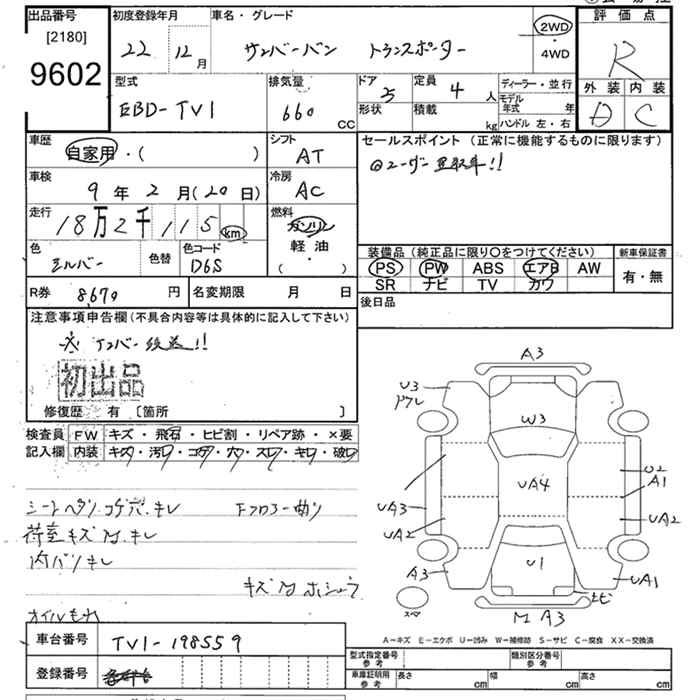 出品番号
[2180]
9602
初度登録年月
22 12月
車名・グレード
サンバーバン トランスポーター
2WD
・
4WD
評価点
R
外装 内装
D C
型式
EBD-TV1
排気量
660 cc
ドア
5
定員
4 人
形状
積載
kg
ディーラー・並行
モデル年式 年
ハンドル 左・右
車歴
自家用・( )
シフト
AT
車検
9年2月(20日)
冷房
AC
走行
18万2千115km
燃料
ガソリン
軽油
・( )
色
シルバー
色替
色コード
D6S
R券 8,670円
名変期限 月 日
セールスポイント (正常に機能するものに限ります)
◎ユーザー買取車!!
装備品 (純正品に限り○をつけてください)
PS PW ABS エアB AW
SR ナビ TV カワ
新車保証書
有・無
後日品
注意事項申告欄 (不具合内容等は具体的に記入して下さい)
ナンバー後送!!
初出品
修復歴 有 [箇所 ]
検査員
記入欄
FW キズ・飛石・ヒビ割・リペア跡・×要
内装 キズ・汚レ・コゲ・穴・スレ・キレ・破レ
シートヘタリ.コゲ穴.キレ Fフロアー曲り
荷室キズM.キレ
内バリキレ
キズMホシュウ
オイルもれ
A3
U3
ドアレ
W3
UA4
U2
A1
UA3
UA2
UA2
A3
U1
UA1
サビ
スペア
M A3
A-キズ E-エクボ U-凹み W-補修跡 S-サビ C-腐食 XX-交換済
車台番号 TV1-198559
登録番号
型式指定番号
参考
類別区分番号
参考
車庫証明用
参考
長さ cm
幅 cm
高さ cm